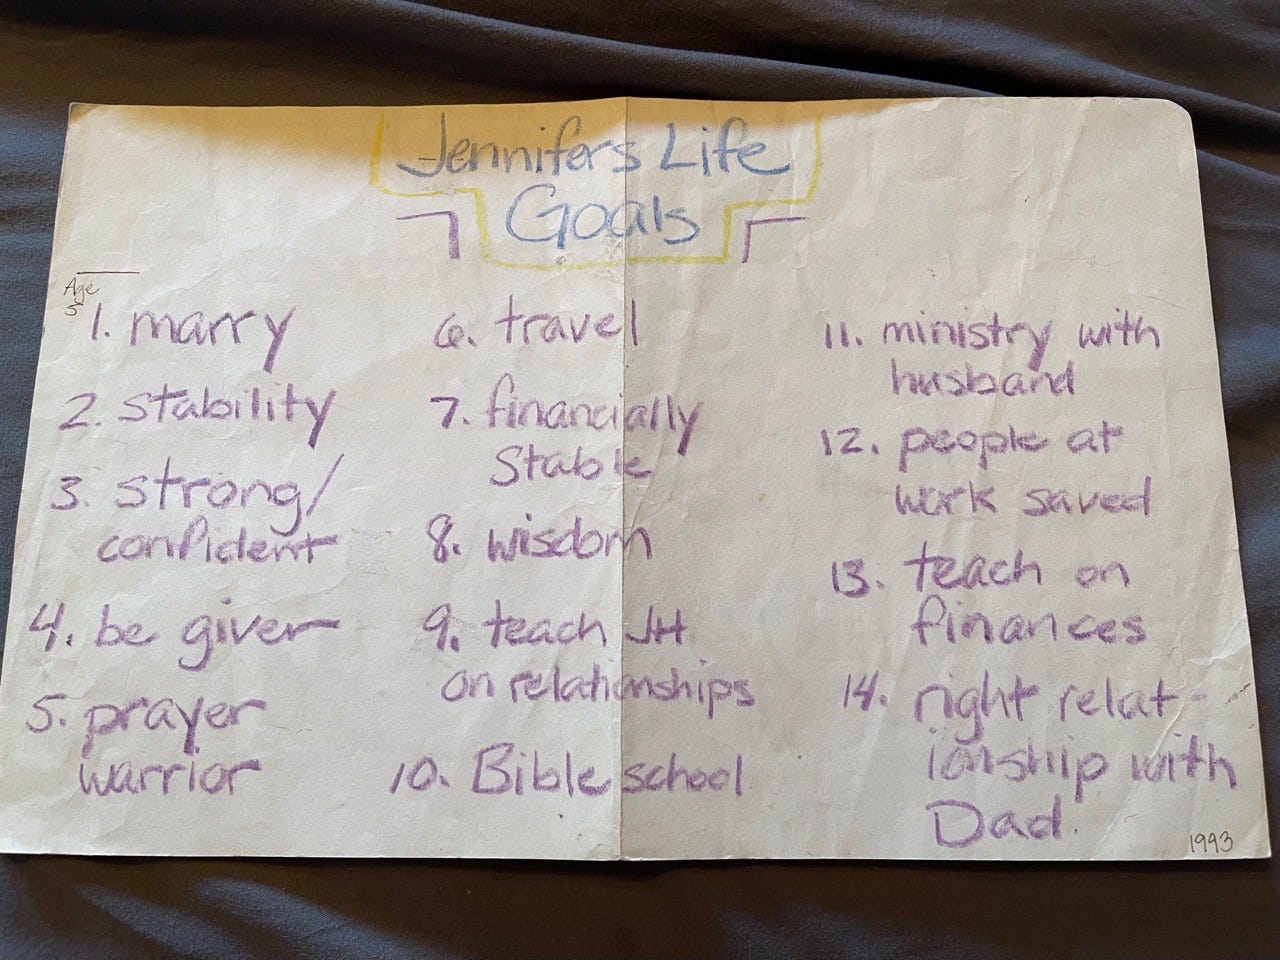 Jennifers Life
Goals
Age
5
1. marry
2. stability
3. strong/
confident
4. be giver
5. prayer
warrior
6. travel
7. financially
Stable
8. wisdom
9. teach JH
on relationships
10. Bible school
11. ministry with
husband
12. people at
work saved
13. teach on
finances
14. right relat-
ionship with
Dad.
1993